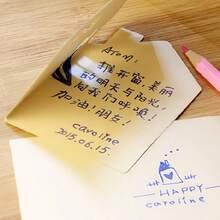 Atom:
推开窗,美丽
的明天与阳光,
向我们呼唤!
加油,朋友!
caroline
2015.06.15.
HAPPY
caroline